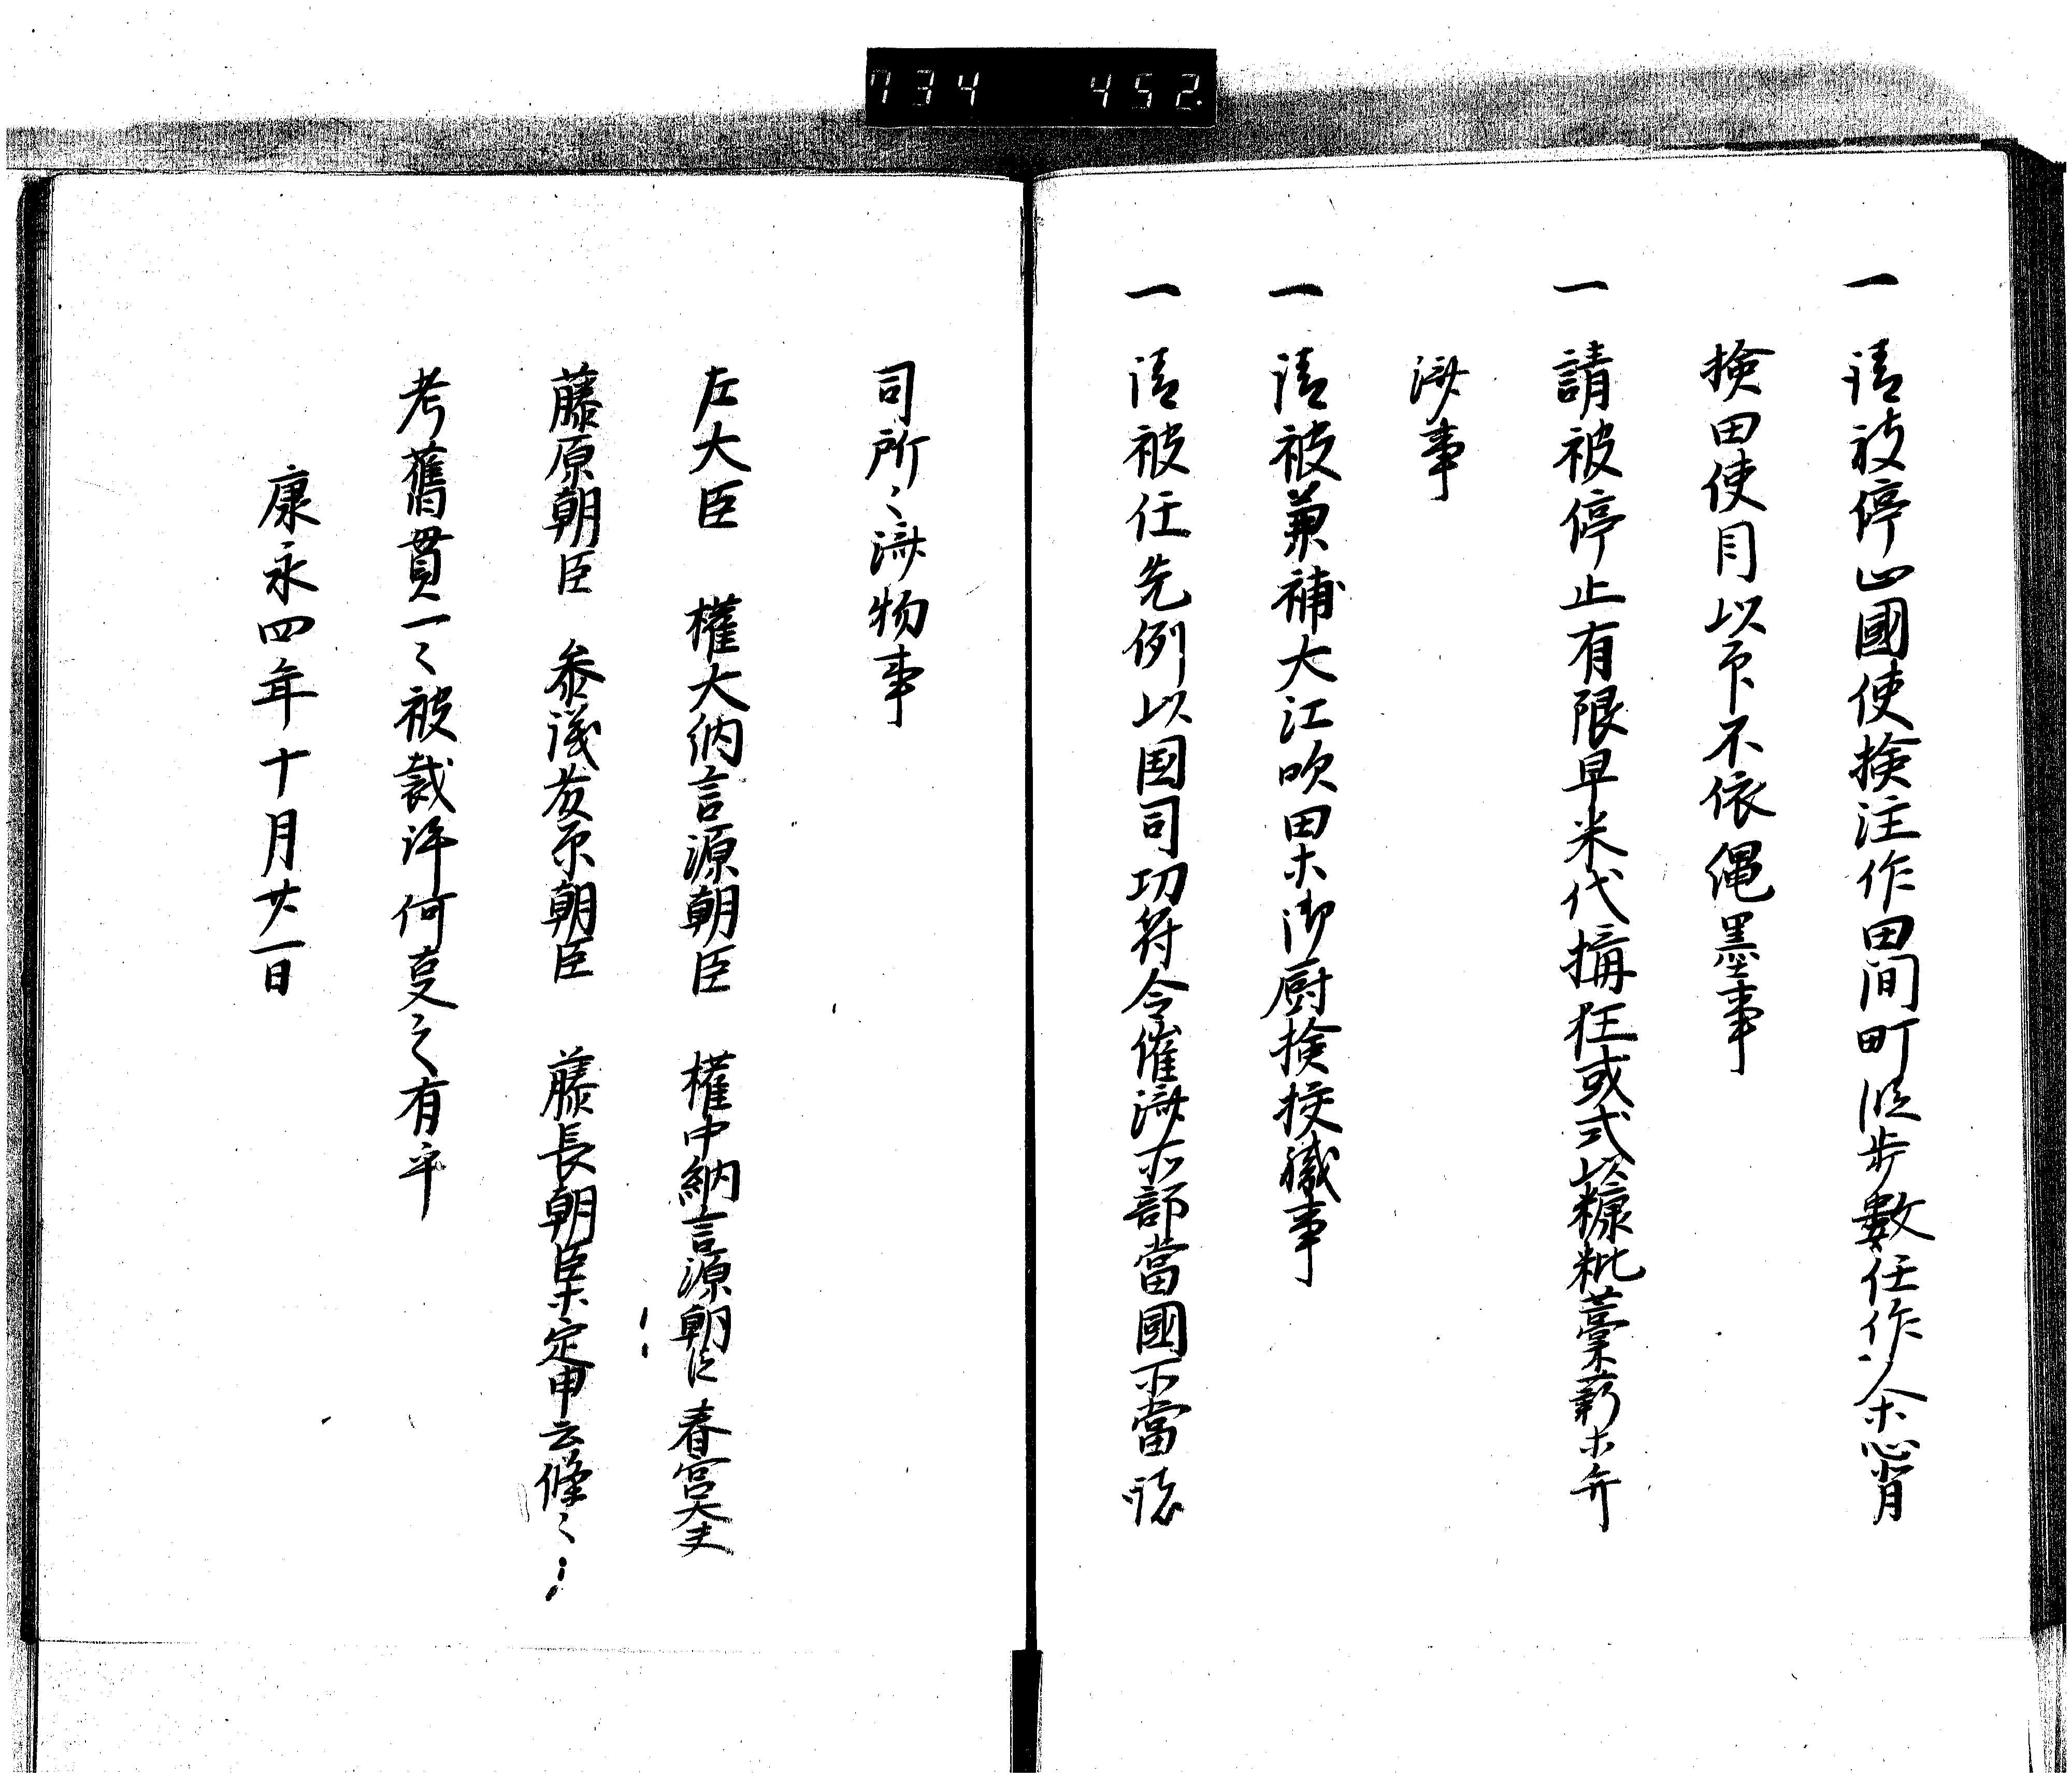 734 452
一 請被停止國使検注作田間町段歩數任作人余心背
検田使目以下不依縄墨事
一 請被停止有限早米代搆狂或式以糠粃藁薪ホ弁
済事
一 請被兼補大江吹田ホ御厨検校職事
一 請被任先例以国司切符令催済所部當國不當諸
司所々済物事
左大臣 權大納言源朝臣 權中納言源朝臣 春宮大夫
藤原朝臣 参議藤原朝臣 藤長朝臣ホ定申云條々
考舊貫一々被裁許何妄之有乎
康永四年十月廿一日